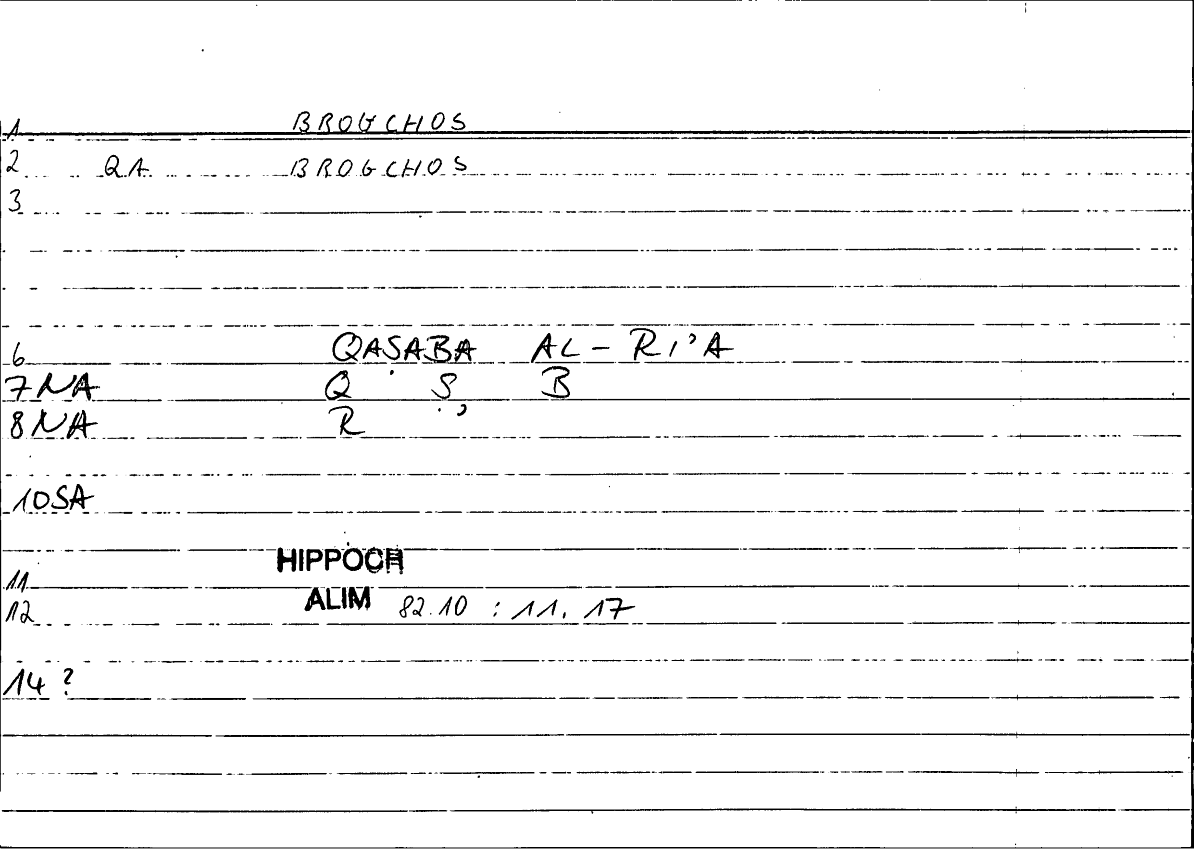 1 BROGCHOS
2 QA BROGCHOS
3
6 QAṢABA AL-RI'A
7 NA Q Ṣ B
8 NA R '
10 SA
11 HIPPOCR
12 ALIM 82.10 : 11, 17
14 ?